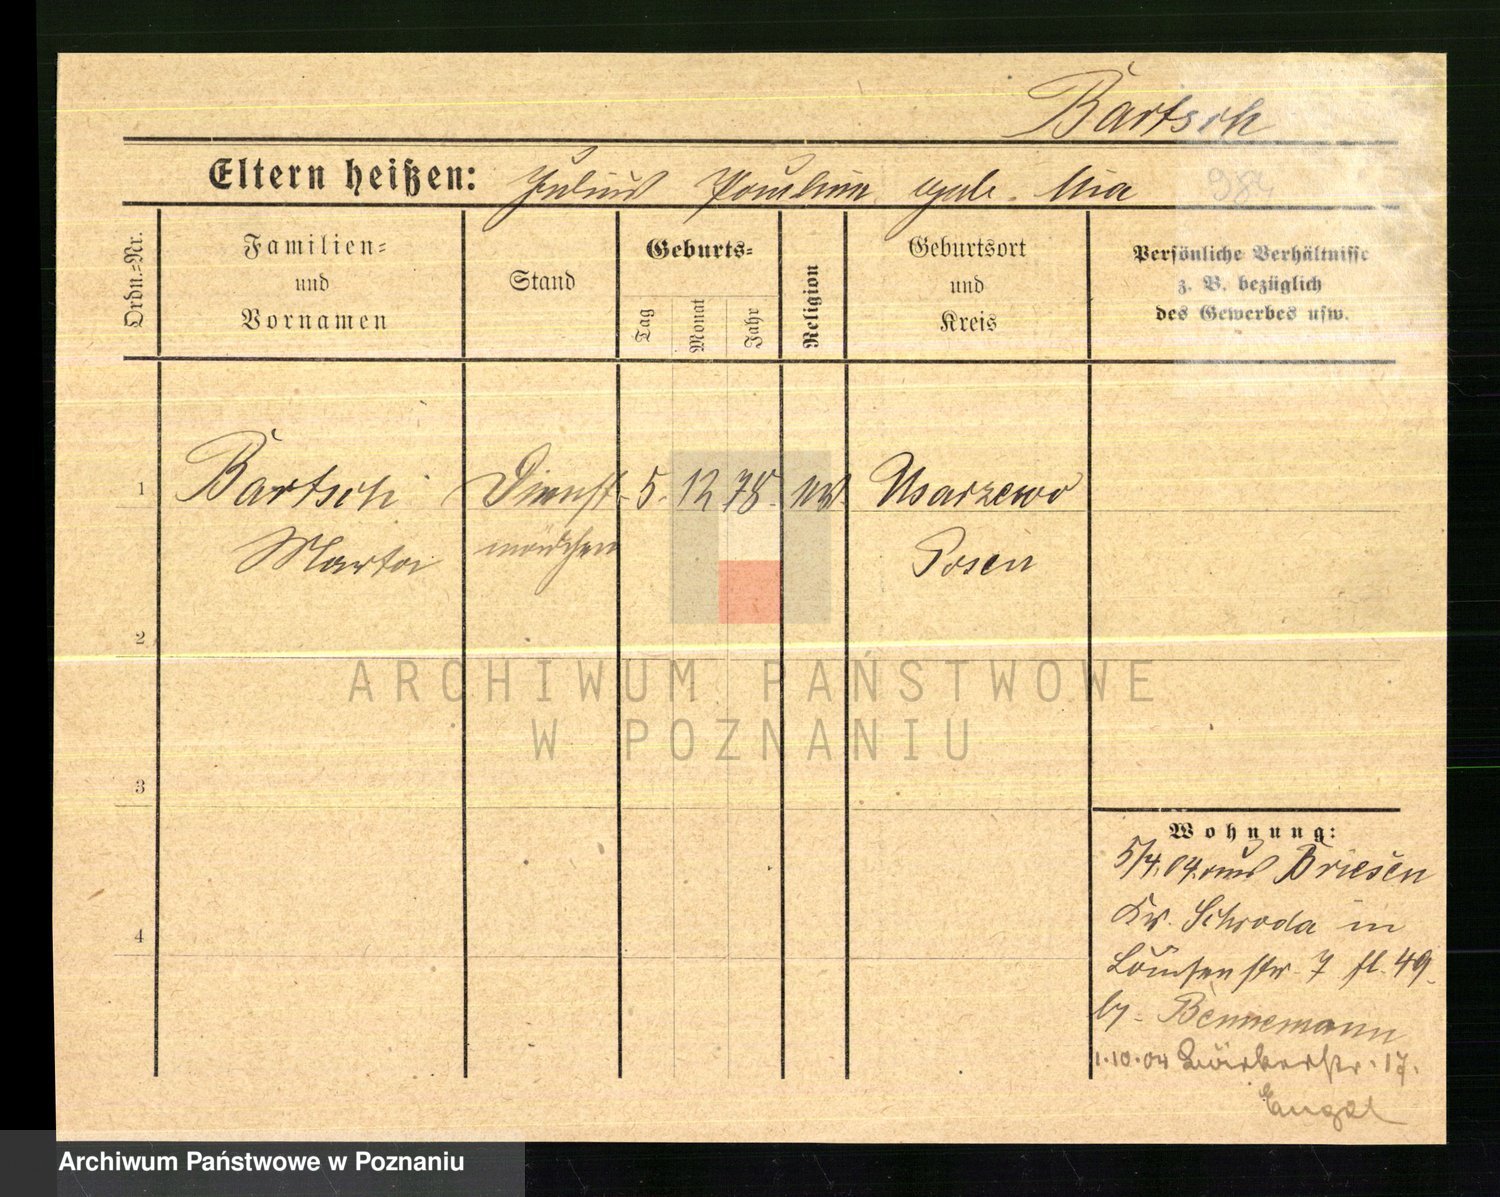 Bartsch
Eltern heißen: Julius Pauline geb. Mia
Ordn.=Nr.
Familien=
und
Vornamen
Stand
Geburts=
Tag
Monat
Jahr
Religion
Geburtsort
und
Kreis
Persönliche Verhältnisse
z. B. bezüglich
des Gewerbes usw.
1
Bartsch Dienst- 5. 12 78. ev. Usarzewo
Marta mädchen Posen
2
ARCHIWUM PAŃSTWOWE
W POZNANIU
3
4
Wohnung:
5/4.04. aus Briesen
Kr. Schroda in
7 fl. 49.
by. Bennemann
1.10.04 17.
Engel
Archiwum Państwowe w Poznaniu